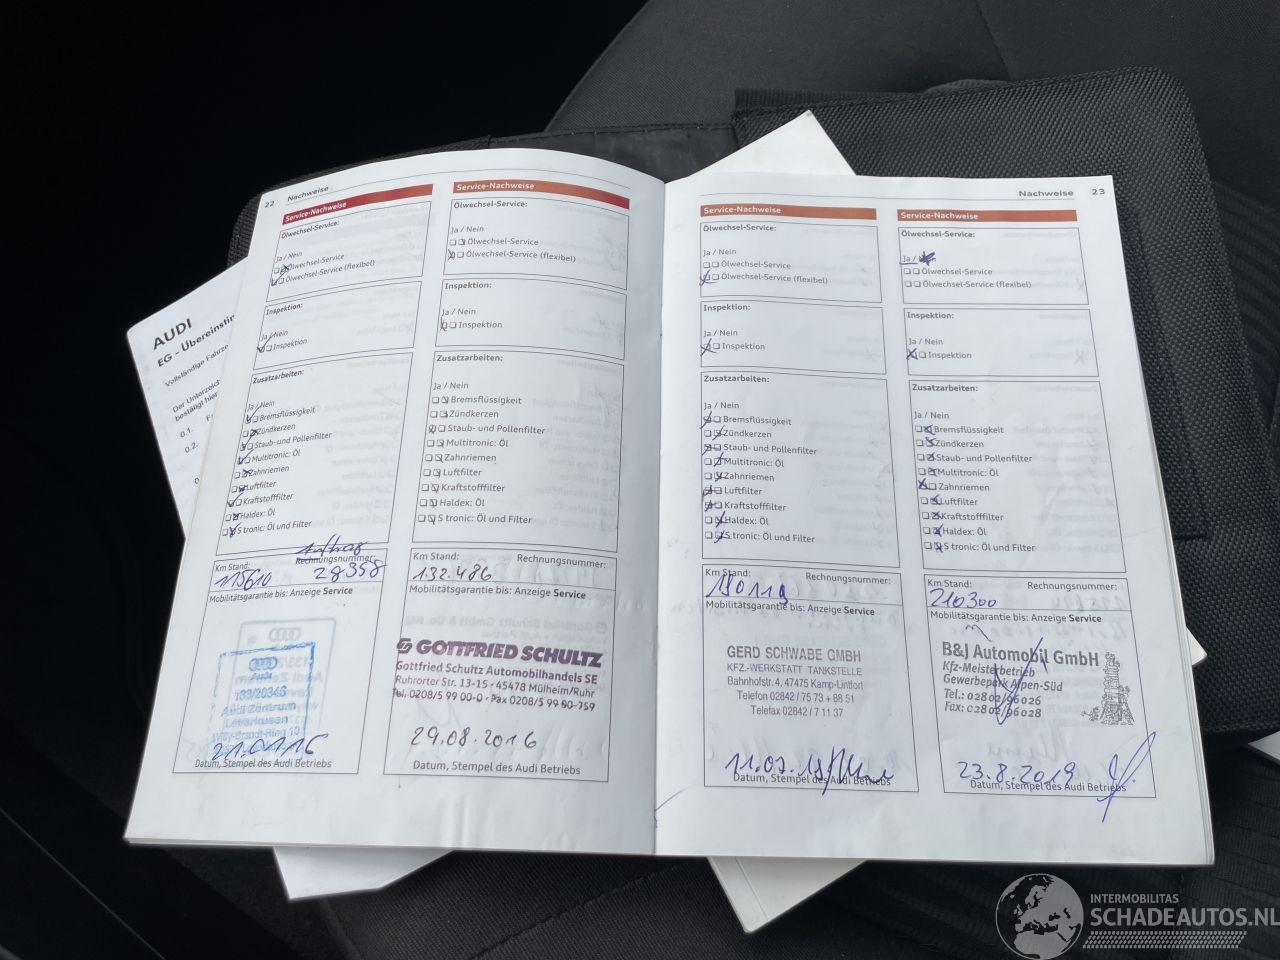 22 Nachweise
Service-Nachweise
Ölwechsel-Service:
Ja / Nein
Ölwechsel-Service
Ölwechsel-Service (flexibel)
Inspektion:
Ja / Nein
Inspektion
Zusatzarbeiten:
Ja / Nein
Bremsflüssigkeit
Zündkerzen
Staub- und Pollenfilter
Multitronic: Öl
Zahnriemen
Luftfilter
Kraftstofffilter
Haldex: Öl
S tronic: Öl und Filter
Auftrag
Km Stand: Rechnungsnummer:
115610 28358
Mobilitätsgarantie bis: Anzeige Service
Audi
133/20346
Audi Zentrum
Leverkusen
21.01.16
Datum, Stempel des Audi Betriebs
Service-Nachweise
Ölwechsel-Service:
Ja / Nein
Ölwechsel-Service
Ölwechsel-Service (flexibel)
Inspektion:
Ja / Nein
Inspektion
Zusatzarbeiten:
Ja / Nein
Bremsflüssigkeit
Zündkerzen
Staub- und Pollenfilter
Multitronic: Öl
Zahnriemen
Luftfilter
Kraftstofffilter
Haldex: Öl
S tronic: Öl und Filter
Km Stand: Rechnungsnummer:
132.486
Mobilitätsgarantie bis: Anzeige Service
GOTTFRIED SCHULTZ
Gottfried Schultz Automobilhandels SE
Ruhrorter Str. 13-15 · 45478 Mülheim/Ruhr
Tel. 0208/5 99 00-0 · Fax 0208/5 99 00-759
29.08.2016
Datum, Stempel des Audi Betriebs
Nachweise 23
Service-Nachweise
Ölwechsel-Service:
Ja / Nein
Ölwechsel-Service
Ölwechsel-Service (flexibel)
Inspektion:
Ja / Nein
Inspektion
Zusatzarbeiten:
Ja / Nein
Bremsflüssigkeit
Zündkerzen
Staub- und Pollenfilter
Multitronic: Öl
Zahnriemen
Luftfilter
Kraftstofffilter
Haldex: Öl
S tronic: Öl und Filter
Km Stand: Rechnungsnummer:
Mobilitätsgarantie bis: Anzeige Service
GERD SCHWABE GMBH
KFZ.-WERKSTATT TANKSTELLE
Bahnhofstr. 4, 47475 Kamp-Lintfort
Telefon 02842 / 75 73 + 88 51
Telefax 02842 / 7 11 37
Datum, Stempel des Audi Betriebs
Service-Nachweise
Ölwechsel-Service:
Ja /
Ölwechsel-Service
Ölwechsel-Service (flexibel)
Inspektion:
Ja / Nein
Inspektion
Zusatzarbeiten:
Ja / Nein
Bremsflüssigkeit
Zündkerzen
Staub- und Pollenfilter
Multitronic: Öl
Zahnriemen
Luftfilter
Kraftstofffilter
Haldex: Öl
S tronic: Öl und Filter
Km Stand: Rechnungsnummer:
210300
Mobilitätsgarantie bis: Anzeige Service
B&J Automobil GmbH
Kfz-Meisterbetrieb
Gewerbepark Alpen-Süd
Tel.: 02802/96026
Fax: 02802/96028
23.8.2019
Datum, Stempel des Audi Betriebs
AUDI
EG - Übereinstim
Vollständige Fahrze
Der Unterzeich
bestätigt hier
0.1.
0.2.
INTERMOBILITAS
SCHADEAUTOS.NL